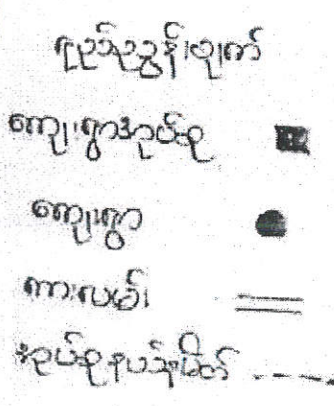 ရည်ညွန်းချက်
ကျေးရွာအုပ်စု
ကျေးရွာ
ကားလမ်း
အုပ်စုနယ်နိမိတ်